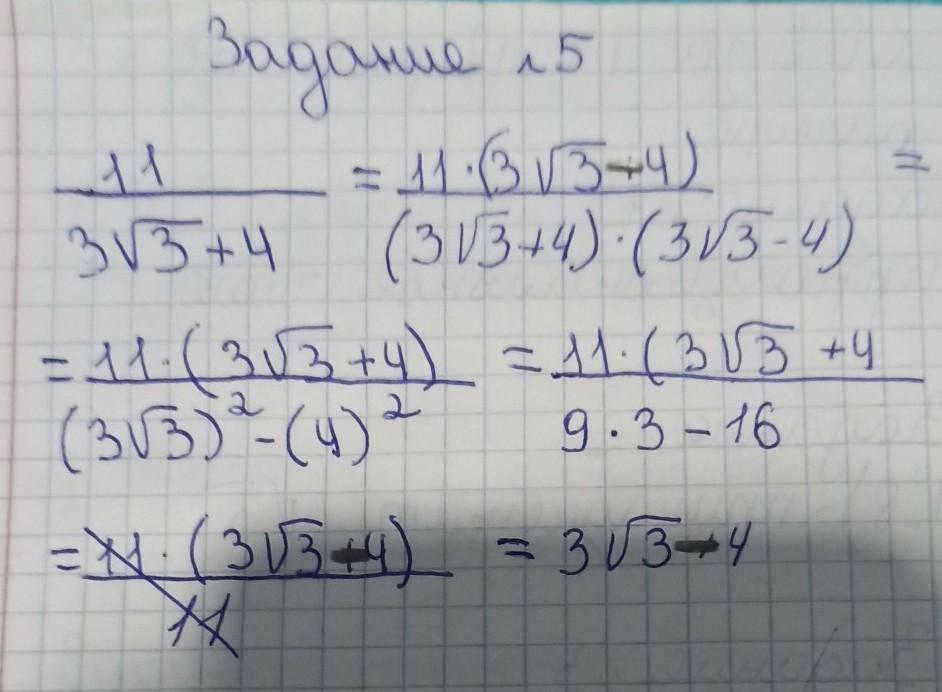 Задание №5
11 / (3√3+4) = 11·(3√3-4) / ((3√3+4)·(3√3-4)) =
= 11·(3√3+4) / ((3√3)²-(4)²) = 11·(3√3+4 / (9·3-16)
= 11·(3√3-4) / 11 = 3√3-4